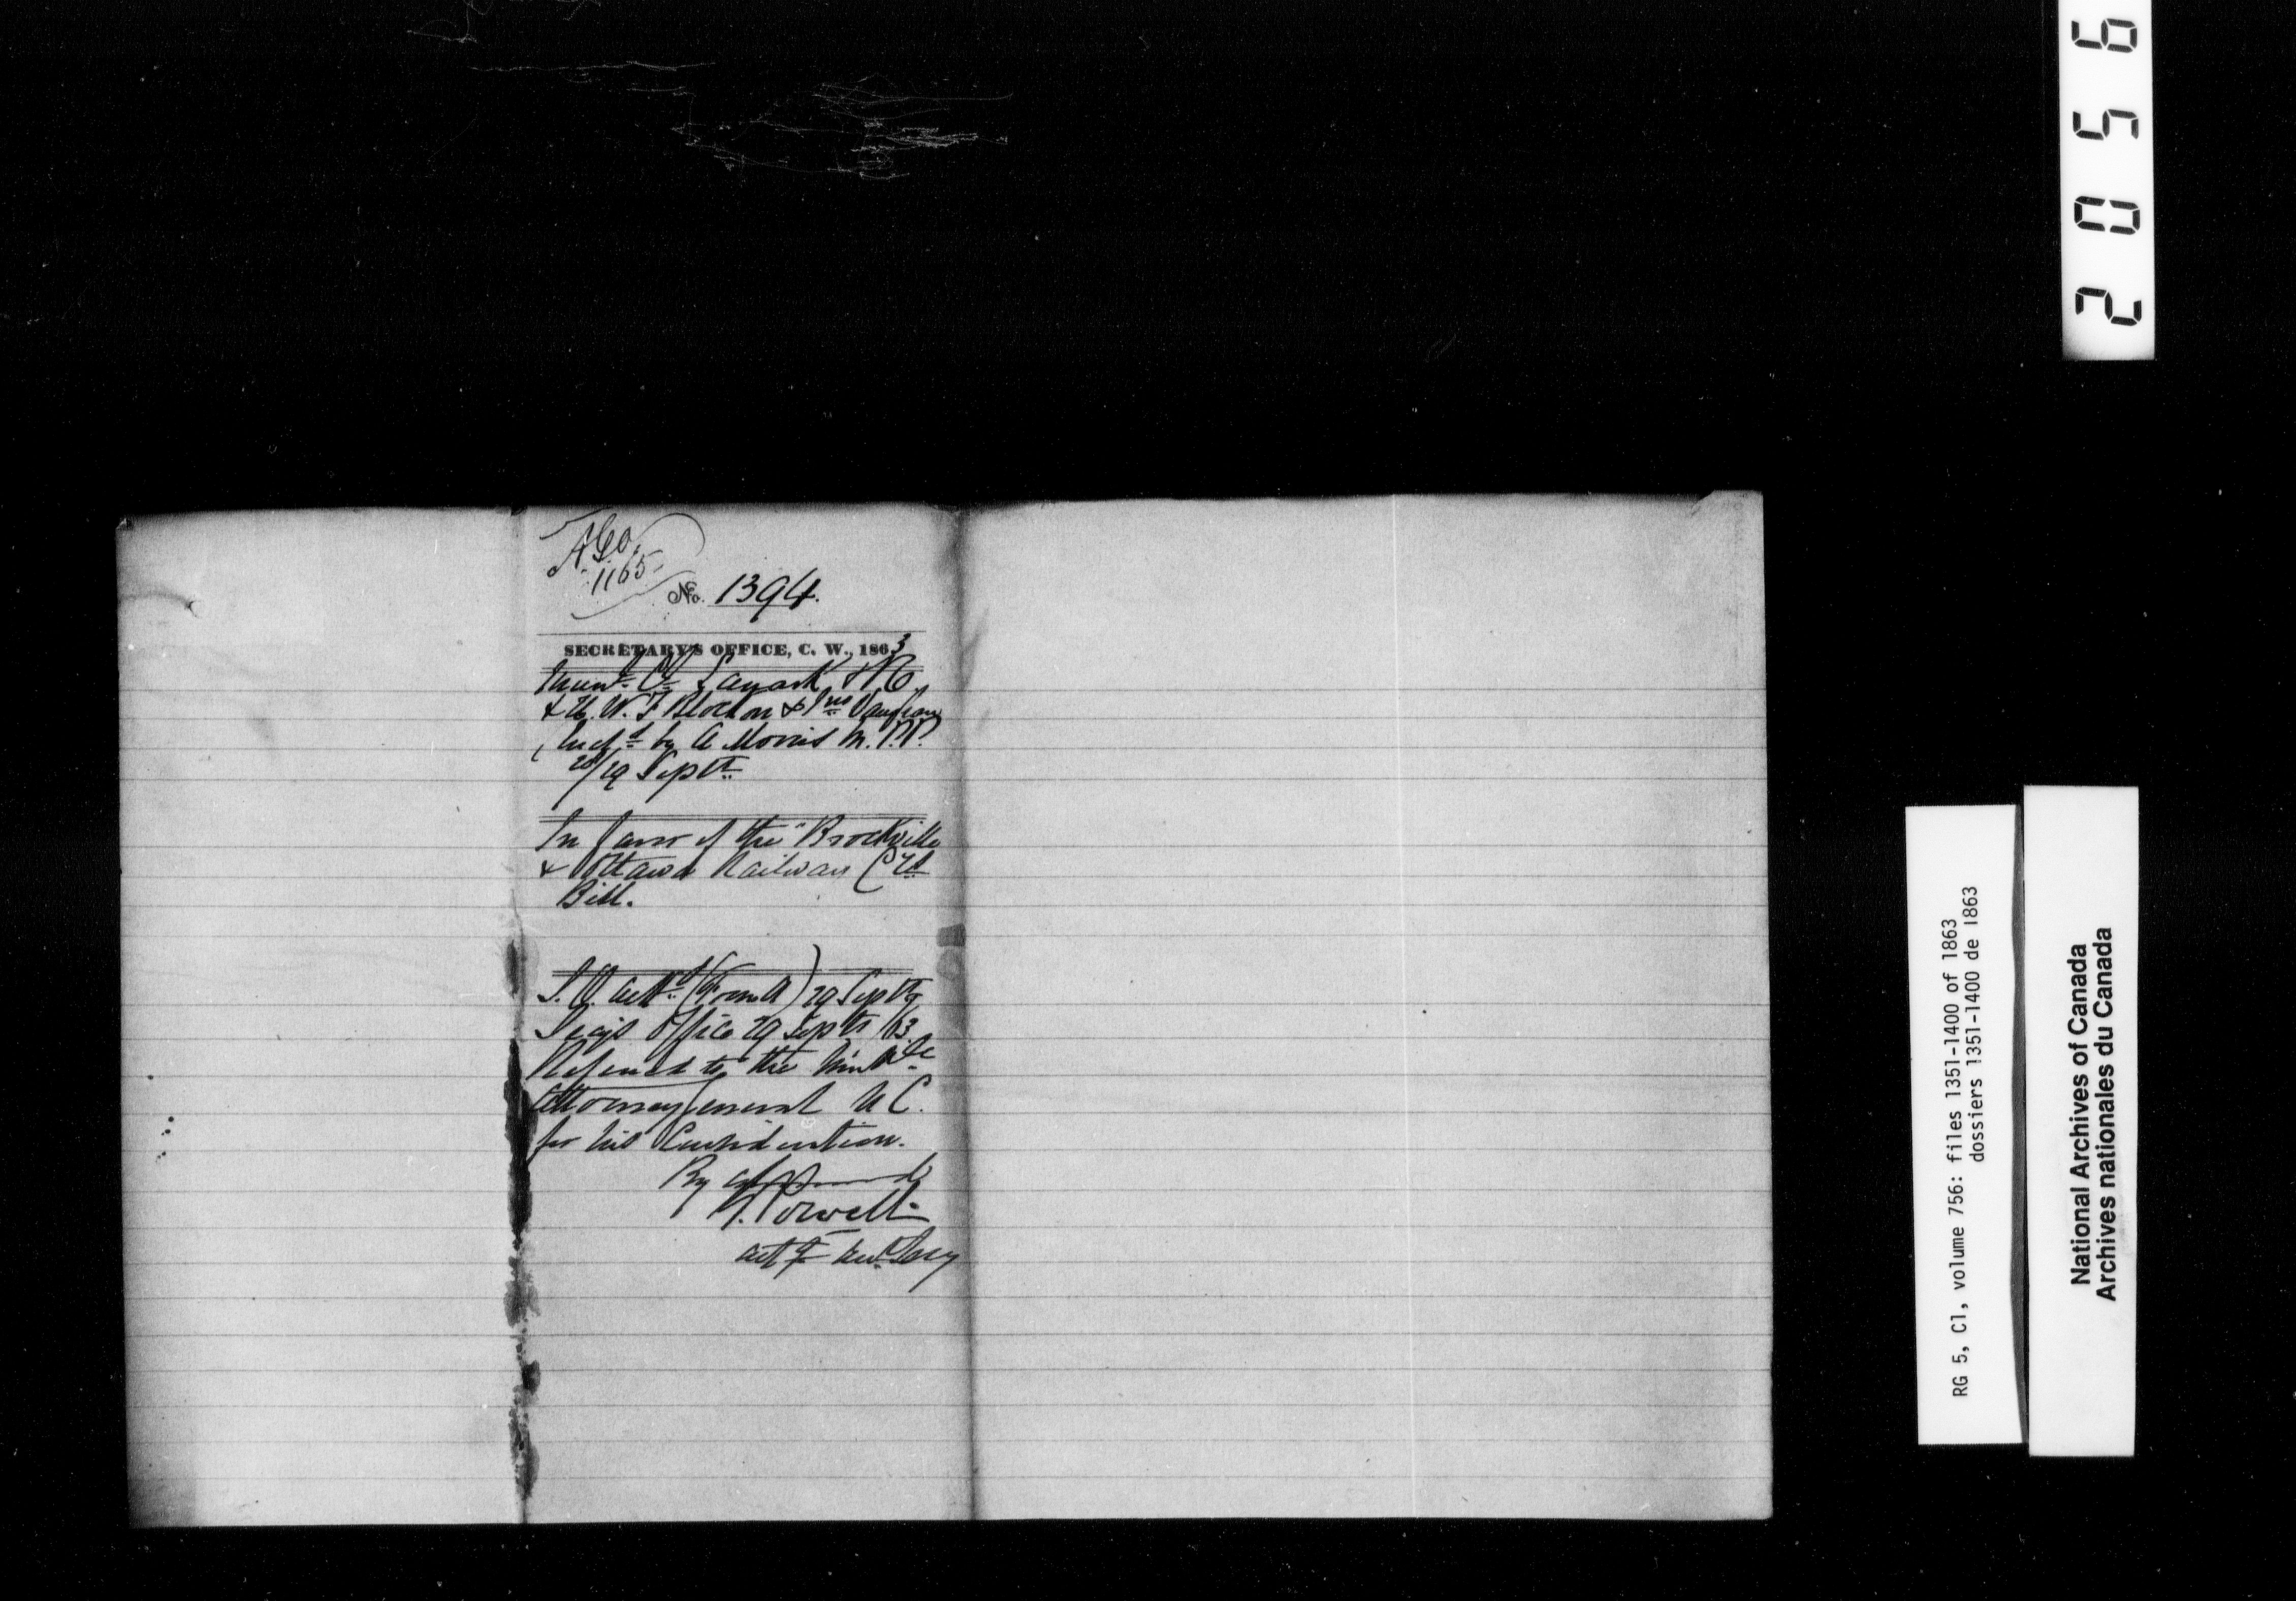 A.G.O.
1165
No. 1394.
SECRETARY'S OFFICE, C. W., 1863
Lanark
& W. & Jno Vaughan
Incl^d by A Morris M.P.P.
28/29 Sept^r
In favor of the Brockville
& Ottawa Railway C^o's
Bill.
(Form A) 29 Sept^r
Secy's Office 29 Sept^r /63
Referred to the Honb^le
Attorney General U C.
for his Consideration.
By Command
G. Powell
Act^g Asst. Secy
2056
RG 5, C1, volume 756: files 1351-1400 of 1863
dossiers 1351-1400 de 1863
National Archives of Canada
Archives nationales du Canada